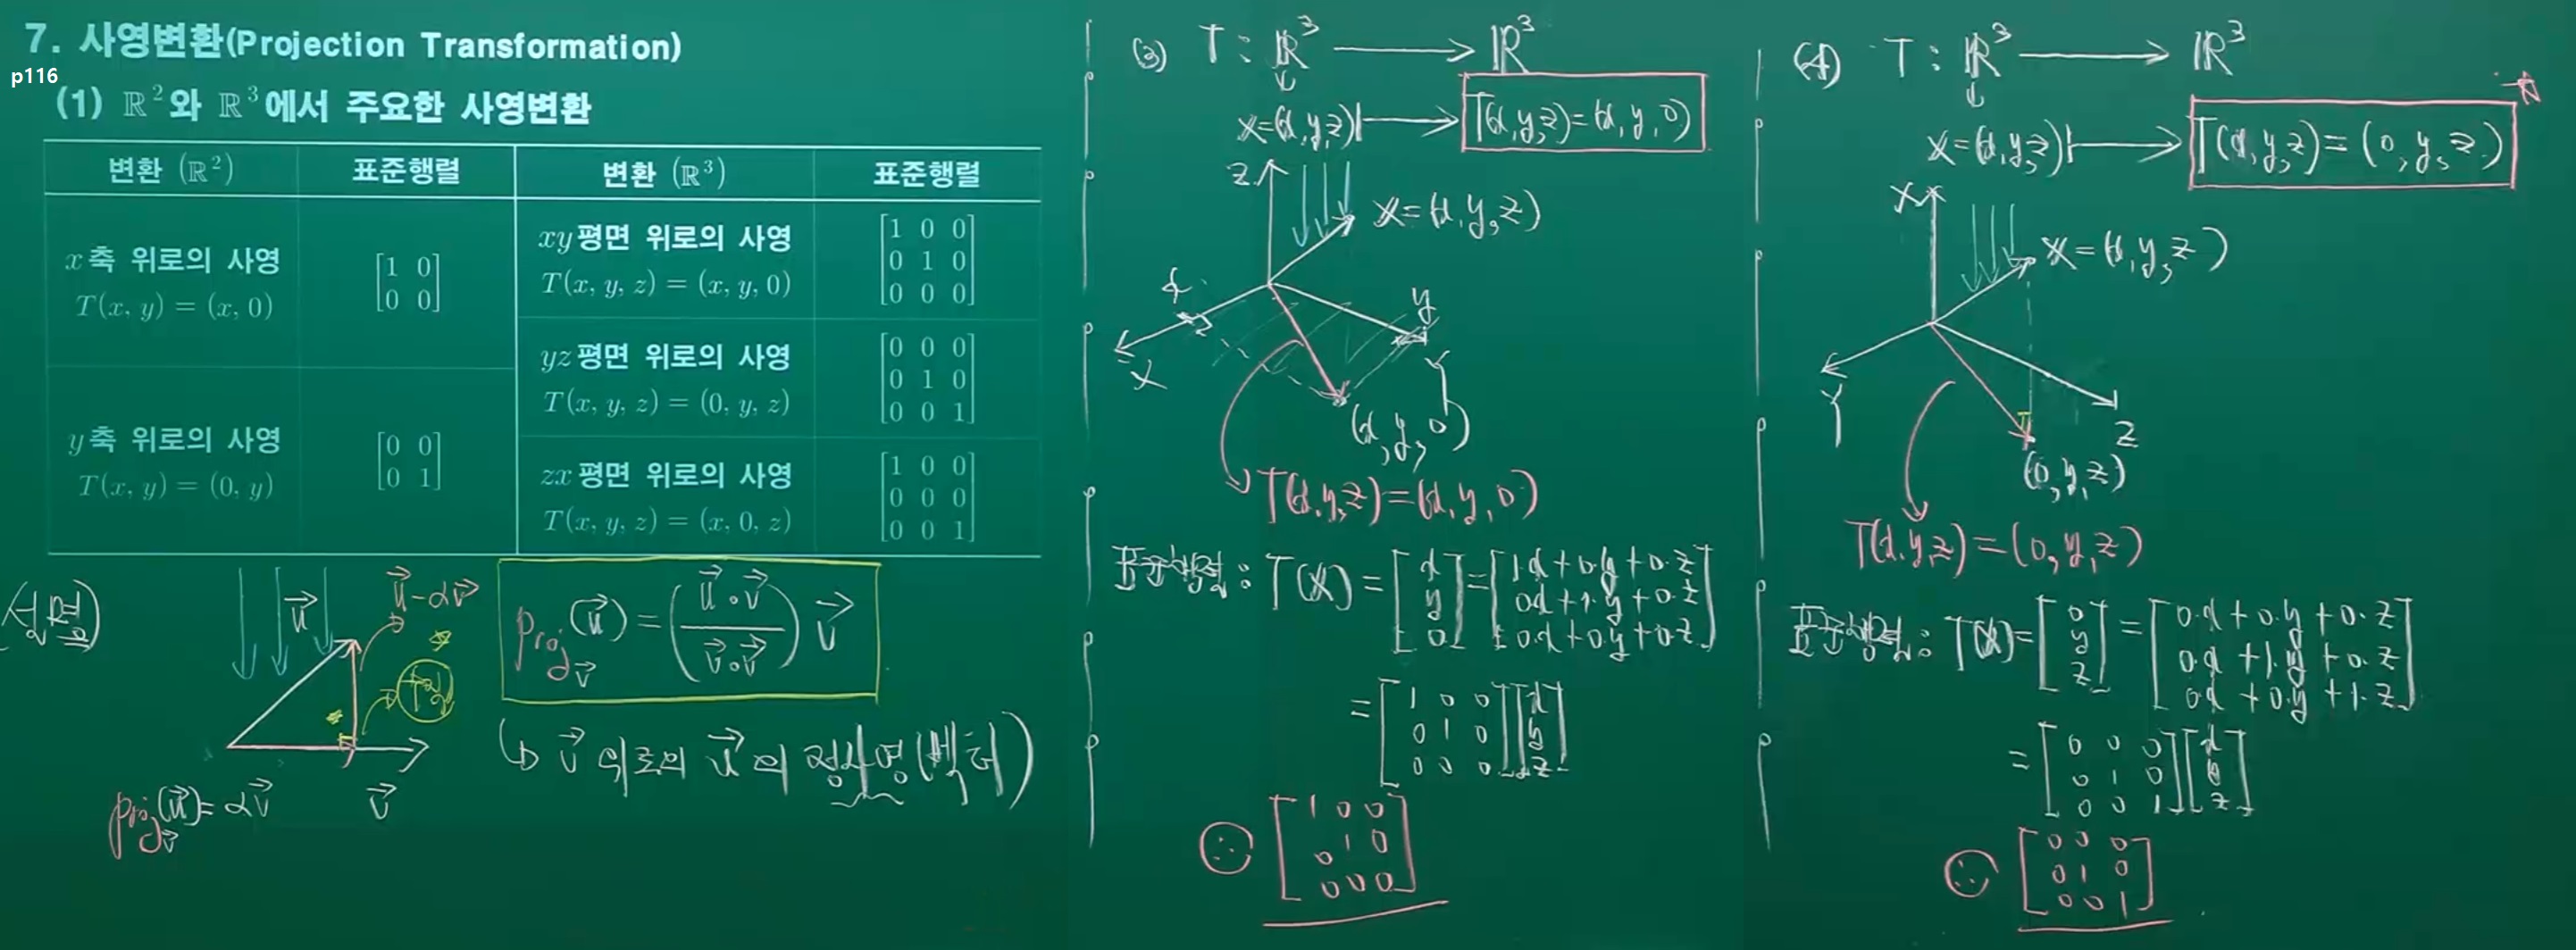 7. 사영변환(Projection Transformation)
p116
(1) ℝ²와 ℝ³에서 주요한 사영변환
변환 (ℝ²) 표준행렬 변환 (ℝ³) 표준행렬
x축 위로의 사영
T(x, y) = (x, 0)
[1 0]
[0 0]
y축 위로의 사영
T(x, y) = (0, y)
[0 0]
[0 1]
xy평면 위로의 사영
T(x, y, z) = (x, y, 0)
[1 0 0]
[0 1 0]
[0 0 0]
yz평면 위로의 사영
T(x, y, z) = (0, y, z)
[0 0 0]
[0 1 0]
[0 0 1]
zx평면 위로의 사영
T(x, y, z) = (x, 0, z)
[1 0 0]
[0 0 0]
[0 0 1]
설명)
u⃗
u⃗-αv⃗
proj_v⃗(u⃗)=αv⃗
v⃗
proj_v⃗(u⃗) = (u⃗∘v⃗ / v⃗∘v⃗) v⃗
v⃗ 위로의 u⃗의 정사영(벡터)
(3) T : ℝ³ → ℝ³
𝕏=(x,y,z) ↦ T(x,y,z)=(x,y,0)
Z
𝕏=(x,y,z)
x
y
X
Y
(x,y,0)
T(x,y,z)=(x,y,0)
표준행렬: T(𝕏) = [x y 0] = [1·x+0·y+0·z
0·x+1·y+0·z
0·x+0·y+0·z]
= [1 0 0
0 1 0
0 0 0] [x y z]
∴ [1 0 0
0 1 0
0 0 0]
(4) T : ℝ³ → ℝ³
𝕏=(x,y,z) ↦ T(x,y,z)=(0,y,z)
X
𝕏=(x,y,z)
Y
Z
(0,y,z)
T(x,y,z)=(0,y,z)
표준행렬: T(𝕏)= [0 y z] = [0·x+0·y+0·z
0·x+1·y+0·z
0·x+0·y+1·z]
= [0 0 0
0 1 0
0 0 1] [x y z]
∴ [0 0 0
0 1 0
0 0 1]